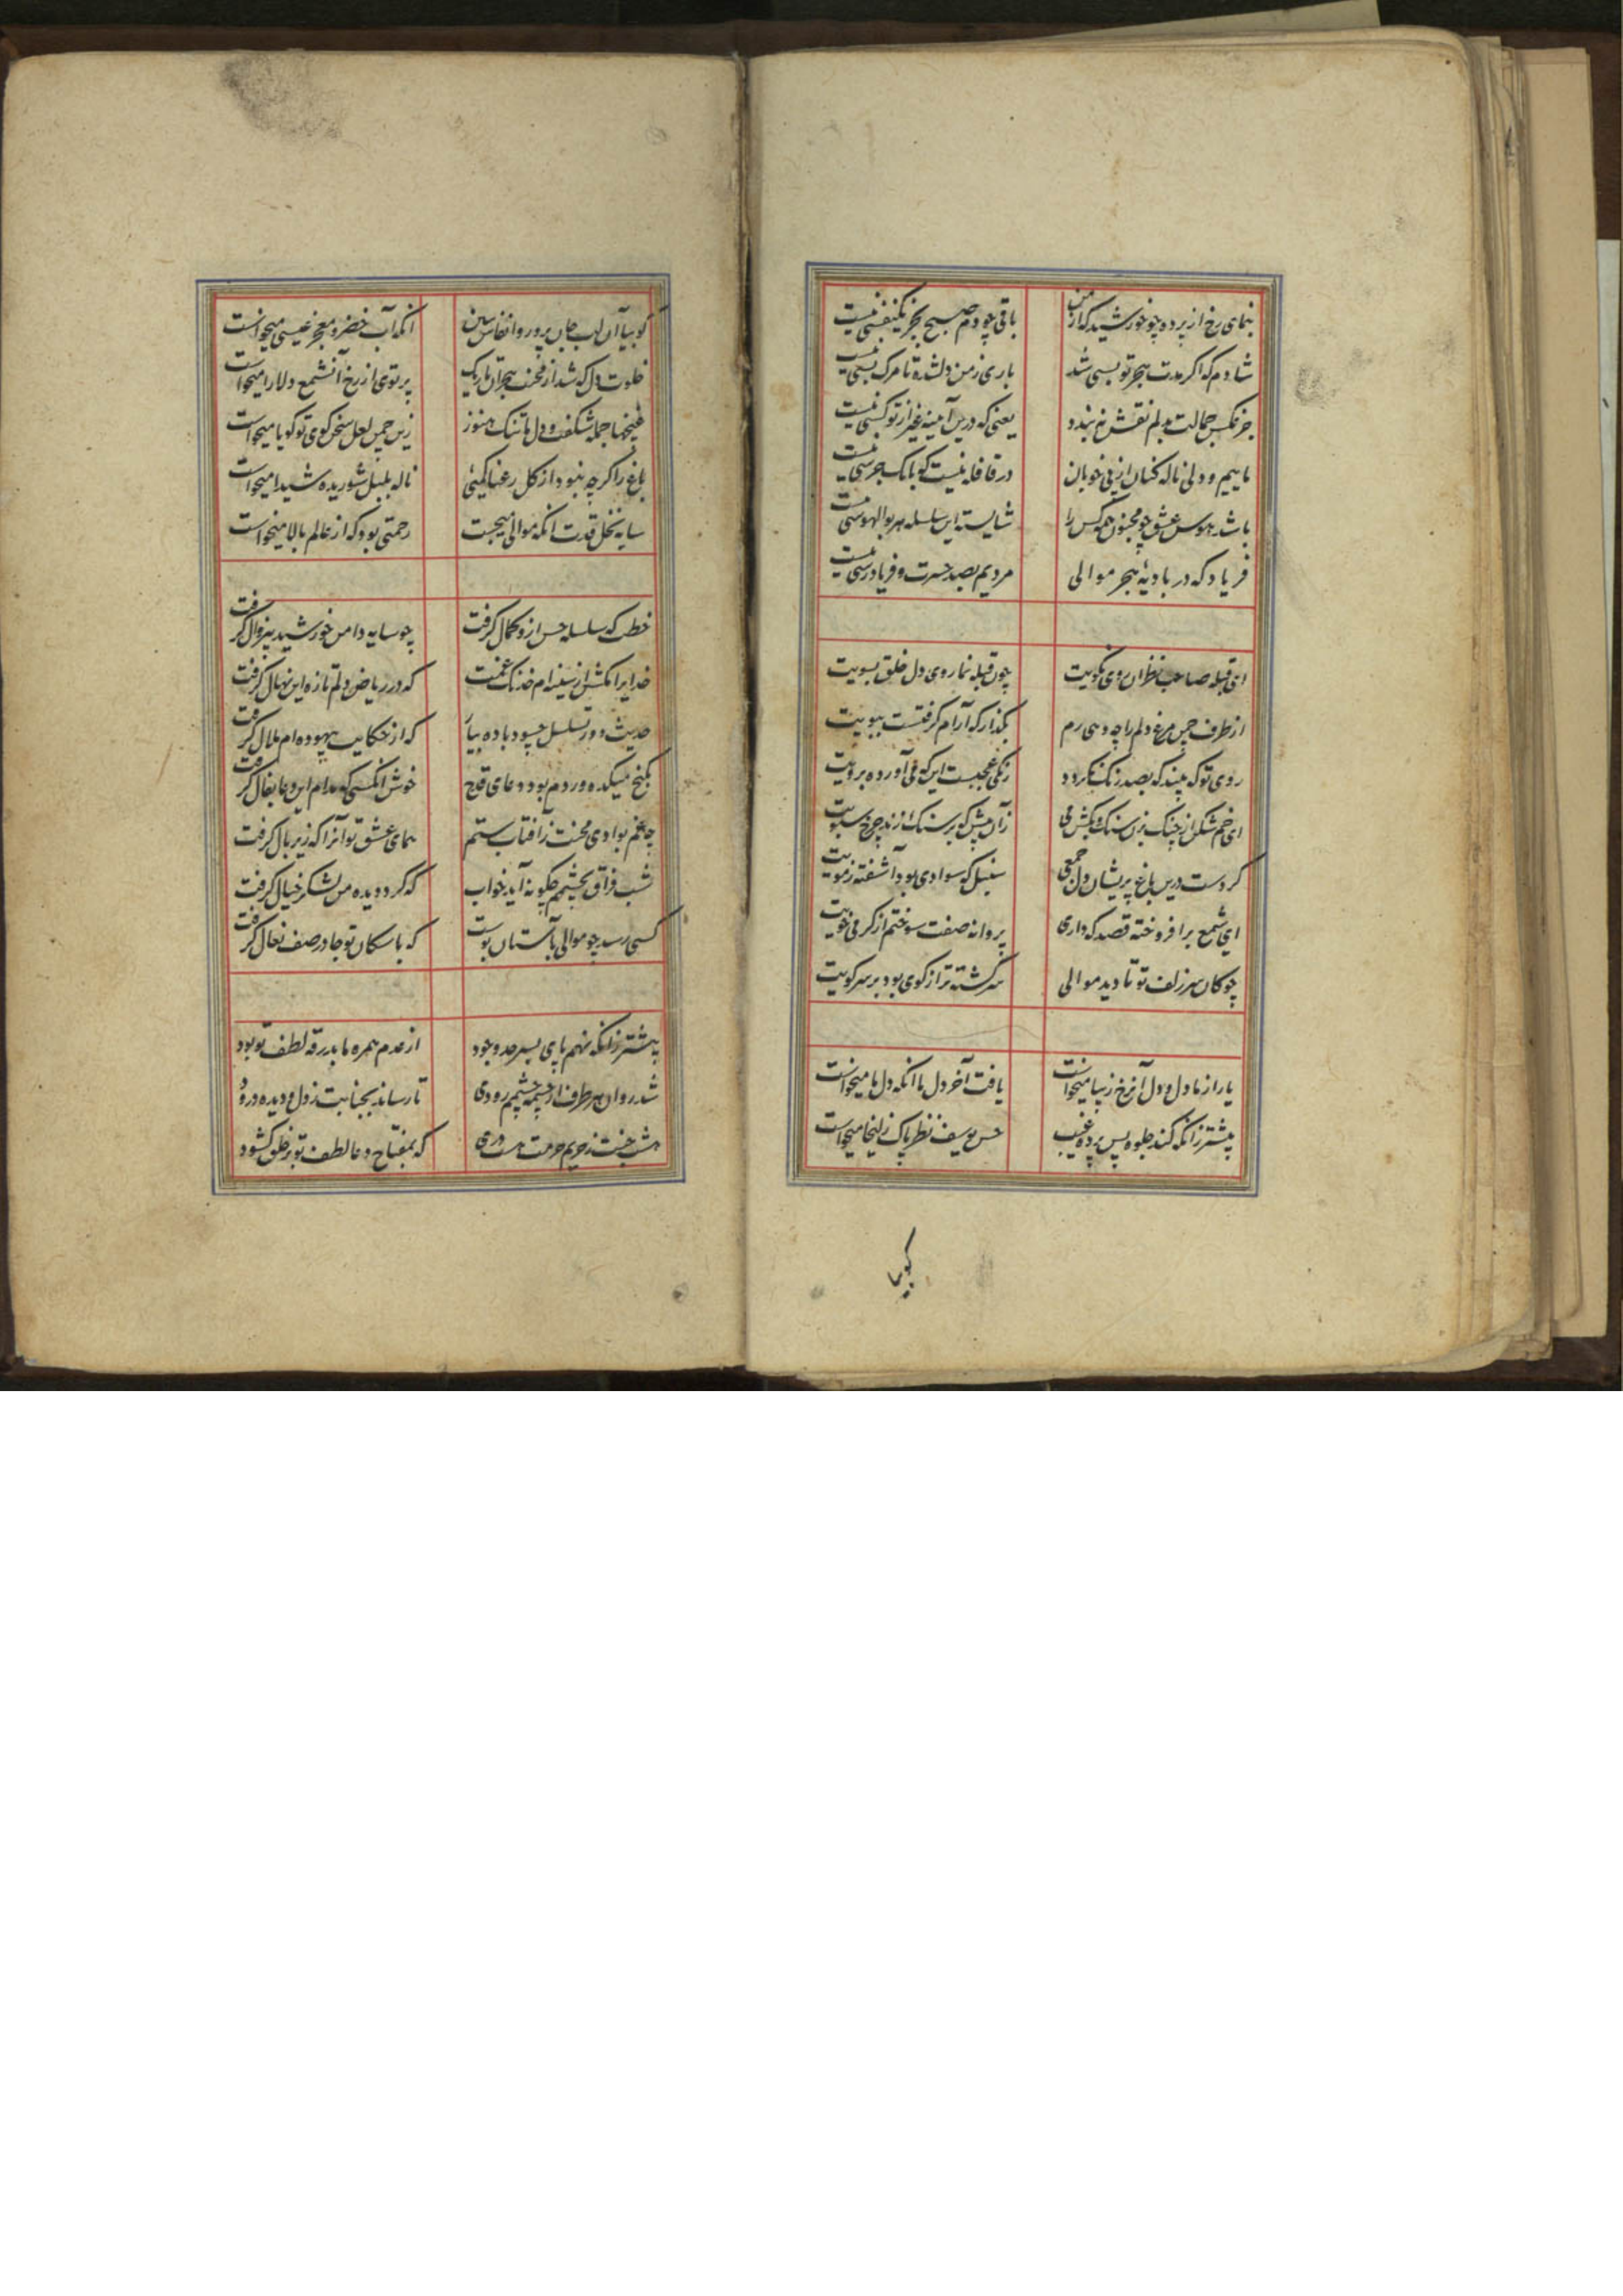 بنمای رخ از پرده چو خورشید که از من باقی چو دم صبح بجز یکنفسی نیست
شادم که اگر مدت هجر تو بسی شد باری ز من دلشده تا مرک بسی نیست
جز عکس جمالت بدلم نقش نه بندد یعنی که درین آینه غیر از تو کسی نیست
ماییم و دلی ناله کنان از پی خوبان در قافله نیست که بانک جرسی نیست
باشد هوس عشق چو مجنون همه کس را شایسته این سلسله هر بوالهوسی نیست
فریاد که در بادیهٔ هجر موالی مردیم بصد حسرت و فریادرسی نیست
ای قبله صاحب نظران روی نکویت چون قبله نما روی دل خلق بسویت
از طرف چمن مرغ دلم را چه دهی رم بکذار که آرام کرفتست ببویت
روی تو که بیند که بصد رنک نکردد رنکی عجبست این که می آورده برویت
ای خم شکن از چنک بزن سنک و بکش می زان پیش که بر سنک زند چرخ سبویت
کردست درین باغ پریشان دل جمعی سنبل که سوادی بود آشفته ز مویت
ای شمع برافروخته قصد که داری پروانه صفت سوختم از کرمی خویت
چوکان سر زلف تو تا دید موالی سرکشته تر از کوی بود بر سر کویت
یار از ما دل و دل آن رخ زیبا میخواست یافت آخر دل ما انکه دل ما میخواست
پیشتر زانکه کند جلوه پس پرده غیب حسن یوسف نظر پاک زلیخا میخواست
کویبا
کوبیا آن لب جان پرور و انفاس ببین انکه آب خضر و معجز عیسی میخواست
خلوت دل که شد از محنت هجران تاریک پرتوی از رخ آنشمع دلارا میخواست
غنچها جمله شکفت و دل ما تنک هنوز زین چمن لعل سخن کوی تو کویا میخواست
باغ را کرچه نبود از کل رعنا کمیئی ناله بلبل شوریده شیدا میخواست
سایه نخل قدت انکه موالی میجست رحمتی بود که از عالم بالا میخواست
خطت که سلسله حسن ازو کمال کرفت چو سایه دامن خورشید بیزوال کرفت
خدایرا مکش از سینه ام خدنک غمت که در ریاض دلم تازه این نهال کرفت
حدیث دور تسلسل چسود باده بیار که از حکایت بیهوده ام ملال کرفت
بکنج میکده وردم بود دعای قدح خوش انکسی که مدام این دعا بفال کرفت
چه غم بوادی محنت ز آفتاب ستم همای عشق تو آنرا که زیر بال کرفت
شب فراق بچشمم چکونه آید خواب که کرد دیده من لشکر خیال کرفت
کسی رسد چو موالی بآستان بوست که با سکان تو جا در صف نعال کرفت
پیشتر زانکه نهم پای بسرحد وجود از عدم همره ما بدرقه لطف تو بود
شد روان هر طرف از چشمه چشمم رودی تا رساند بجنابت ز دل و دیده درود
هشت جنت ز حریم حرمت هست دری که بمفتاح دعا لطف تو بر خلق کشود